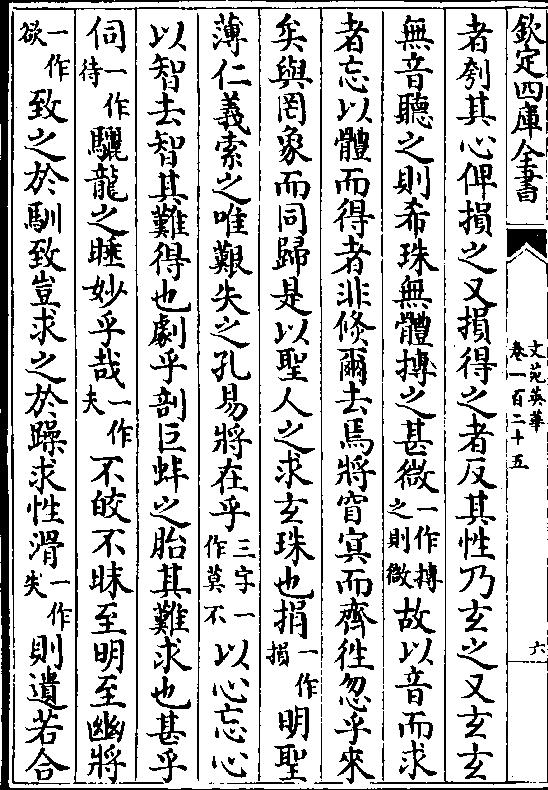 欽定四庫全書
文苑英華
卷一百二十五
六
者刳其心俾損之又損得之者反其性乃玄之又玄玄
無音聽之則希珠無體摶之甚微一作摶之則微故以音而求
者忘以體而得者非倏爾去焉將窅㝠而齊徃忽乎來
矣與罔象而同歸是以聖人之求玄珠也捐一作損明聖
薄仁義索之唯艱失之孔易將在乎三字一作莫不以心忘心
以智去智其難得也劇乎剖巨蚌之胎其難求也甚乎
伺一作待驪龍之睡妙乎哉一作夫不皎不昧至明至幽將
欲一作致之於馴致豈求之於躁求性滑一作失則遺若合